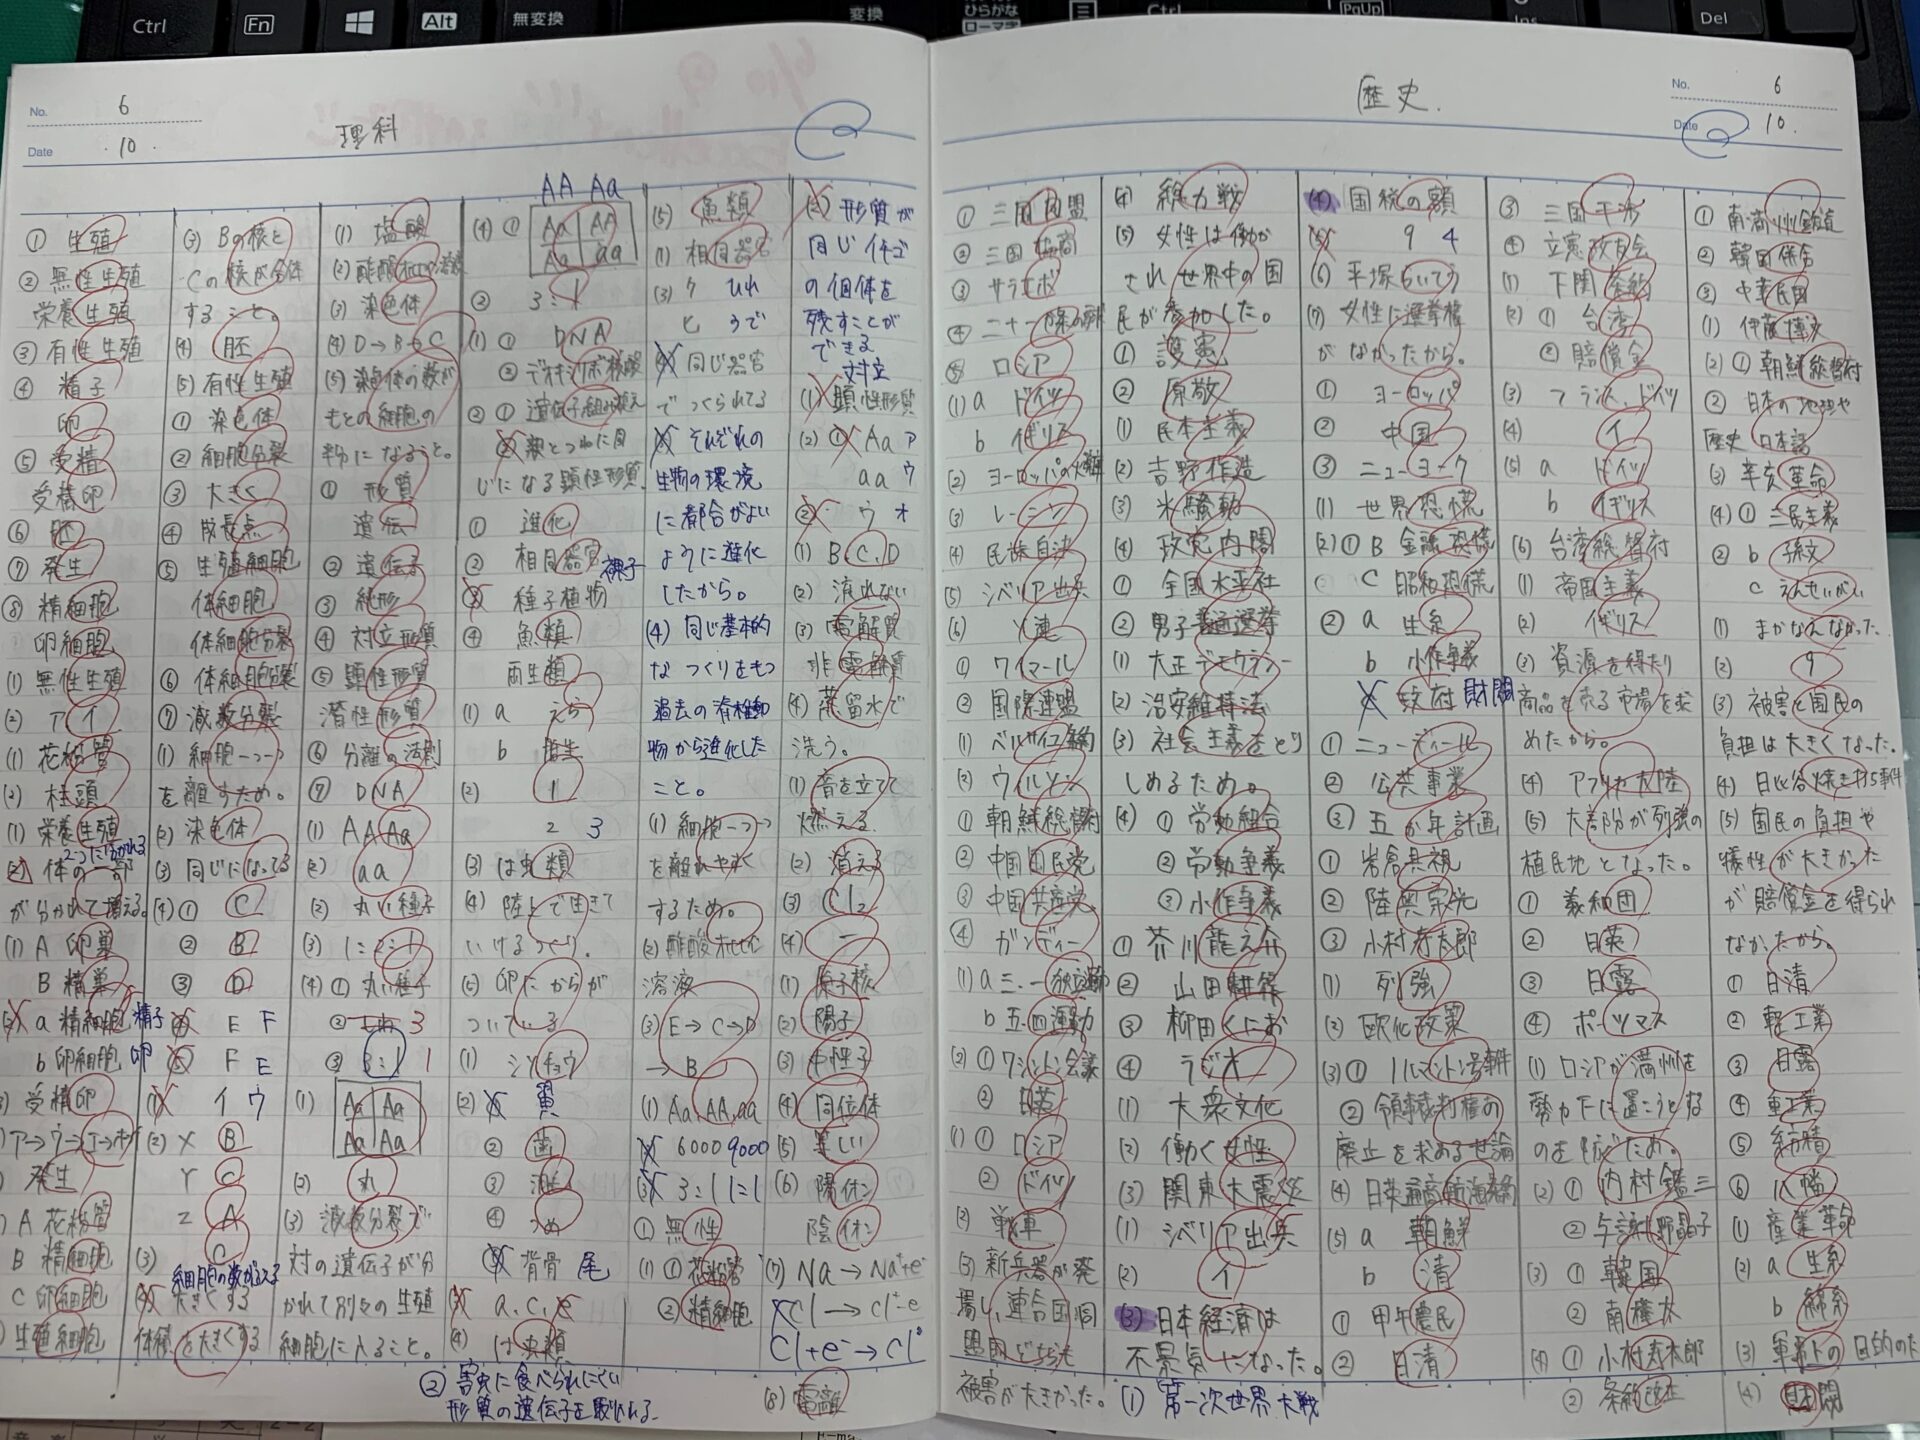 Ctrl
Fn
Alt
無変換
変換
ひらがな
ローマ字
Ctrl
PgUp
Ins
Del
No. 6
Date 10.
理科
① 生殖
② 無性生殖
栄養生殖
③ 有性生殖
④ 精子
卵
⑤ 受精
受精卵
⑥ 胚
⑦ 発生
⑧ 精細胞
卵細胞
(1) 無性生殖
(2) ア イ
(1) 花粉管
(2) 柱頭
(1) 栄養生殖
(2) 体の一部
が分かれて増える。
(1) A 卵巣
B 精巣
a 精細胞 精子
b 卵細胞 卵
受精卵
発生
A 花粉管
B 精細胞
C 卵細胞
生殖細胞
(3) Bの核と
Cの核が合体
すること。
(4) 胚
(5) 有性生殖
① 染色体
② 細胞分裂
③ 大きく
④ 成長点
⑤ 生殖細胞
体細胞
体細胞分裂
⑥ 体細胞分裂
⑦ 減数分裂
(1) 細胞一つ一つ
を離すため。
(2) 染色体
(3) 同じになってる
(4) ① C
② B
③ D
④ E F
⑤ F E
(1) イ ウ
(2) X B
Y C
Z A
C
(3) 細胞の数がふえる
大きくする
体積を大きくする
(1) 塩酸
(3) 染色体
(4) D→B→C
(5) 染色体の数が
もとの細胞の
半分になること。
① 形質
遺伝
② 遺伝子
③ 純形
④ 対立形質
⑤ 顕性形質
潜性形質
⑥ 分離の法則
⑦ DNA
(1) AA Aa
(2) aa
(2) 丸い種子
(3) 1:2:1
(4) ① 丸い種子
② 3
③ 3:1 1
(1) Aa Aa
Aa Aa
(2) 丸
(3) 減数分裂で
対の遺伝子が分
かれて別々の生殖
細胞に入ること。
AA Aa
(4) ① Aa AA
Aa aa
② 3:1
(1) ① DNA
② デオキシリボ核酸
② ① 遺伝子組み換え
じになる顕性形質
① 進化
② 相同器官
裸子
③ 種子植物
④ 魚類
両生類
(1) a えら
b 胎生
(2) 1
2 3
(3) は虫類
(4) 陸上で生きて
いけるつくり。
(5) 卵にからが
ついている
(1) シソチョウ
(2) ① 翼
② 歯
③
④ つめ
⑤ 背骨 尾
(3) a、c、e
(4) は虫類
② 害虫に食べられにくい
形質の遺伝子を
(5) 魚類
(1) 相同器官
(3) ク ひれ
ヒ うで
同じ器官
でつくられてる
それぞれの
生物の環境
に都合がよい
ように進化
したから。
(4) 同じ基本的
なつくりをもつ
過去の脊椎動
物から進化した
こと。
(1) 細胞一つ一つ
を離れやすく
するため。
溶液
(3) E→C→D
→B
(1) Aa、AA、aa
6000 9000
3:1 1:1
① 無性
(1) ① 花粉管
② 精細胞
(2) 形質が
同じ
の個体を
残すことが
できる
対立
(1) 顕性形質
(2) ① Aa ア
aa ウ
② ウ オ
(1) B、C、D
(2) 流れない
(3) 電解質
非電解質
(4) 蒸留水で
洗う。
(1) 音を立てて
燃える
(2) 消える
(3) Cl₂
(4) −
(1) 原子核
(2) 陽子
(3) 中性子
(4) 同位体
(5) 等しい
(6) 陽イオン
陰イオン
(7) Na→Na⁺+e⁻
Cl→Cl⁺-e
Cl+e⁻→Cl⁻
(8) 電離
歴史.
No. 6
Date 10.
① 三国同盟
② 三国協商
③ サラエボ
⑤ ロシア
(1) a ドイツ
b イギリス
(2) ヨーロッパの火薬庫
(3) レーニン
(4) 民族自決
(5) シベリア出兵
(6) ソ連
① ワイマール
② 国際連盟
(1) ベルサイユ条約
(2) ウィルソン
① 朝鮮総督府
② 中国国民党
③ 中国共産党
④ ガンディー
(1) a 三・一独立運動
b 五・四運動
(2) ① ワシントン会議
② 日英
(1) ① ロシア
② ドイツ
(2) 戦車
(3) 新兵器が発
場し、連合国同
盟国どちらも
被害が大きかった。
(4) 総力戦
(5) 女性は働か
され世界中の国
民が参加した。
① 護憲
② 原敬
(1) 民本主義
(2) 吉野作造
(3) 米騒動
(4) 政党内閣
① 全国水平社
② 男子普通選挙
(1) 大正デモクラシー
(2) 治安維持法
(3) 社会主義をとり
しめるため。
(4) ① 労働組合
② 労働争議
③ 小作争議
① 芥川龍之介
② 山田耕筰
③ 柳田くにお
④ ラジオ
(1) 大衆文化
(2) 働く女性
(3) 関東大震災
(1) シベリア出兵
(2) イ
(3) 日本経済は
不景気になった。
(1) 第一次世界大戦
(4) 国税の額
(5) 9 4
(6) 平塚らいてう
(7) 女性に選挙権
がなかったから。
① ヨーロッパ
② 中国
③ ニューヨーク
(1) 世界恐慌
(2) ① B 金融恐慌
C 昭和恐慌
② a 生糸
b 小作争議
政府 財閥
① ニューディール
② 公共事業
③ 五か年計画
① 岩倉具視
② 陸奥宗光
③ 小村寿太郎
(1) 列強
(2) 欧化政策
(3) ① ノルマントン号事件
② 領事裁判権の
廃止を求める世論
(4) 日英通商航海条約
(5) a 朝鮮
b 清
① 甲午農民
② 日清
③ 三国干渉
④ 立憲政友会
(1) 下関条約
(2) ① 台湾
② 賠償金
(3) フランス、ドイツ
(4) イ
(5) a ドイツ
b イギリス
(6) 台湾総督府
(1) 帝国主義
(2) イギリス
(3) 資源を得たり
商品を売る市場を求
めたから。
(4) アフリカ大陸
(5) 大部分が列強の
植民地となった。
① 義和団
② 日英
③ 日露
④ ポーツマス
(1) ロシアが満州を
勢力下に置こうとする
のを防ぐため。
(2) ① 内村鑑三
② 与謝野晶子
(3) ① 韓国
② 南樺太
(4) ① 小村寿太郎
② 条約改正
① 南満州鉄道
② 韓国併合
③ 中華民国
(1) 伊藤博文
(2) ① 朝鮮総督府
② 日本の地理や
歴史 日本語
(3) 辛亥革命
(4) ① 三民主義
② b 孫文
c えんせいがい
(1) まかなえなかった
(2) 9
(3) 被害と国民の
負担は大きくなった。
(4) 日比谷焼き打ち事件
(5) 国民の負担や
犠牲が大きかった
が賠償金を得られ
なかったから。
① 日清
② 軽工業
③ 日露
④ 重工業
⑤ 紡績
⑥ 八幡
(1) 産業革命
(2) a 生糸
b 綿糸
(3) 軍事上の目的のため
(4) 財閥